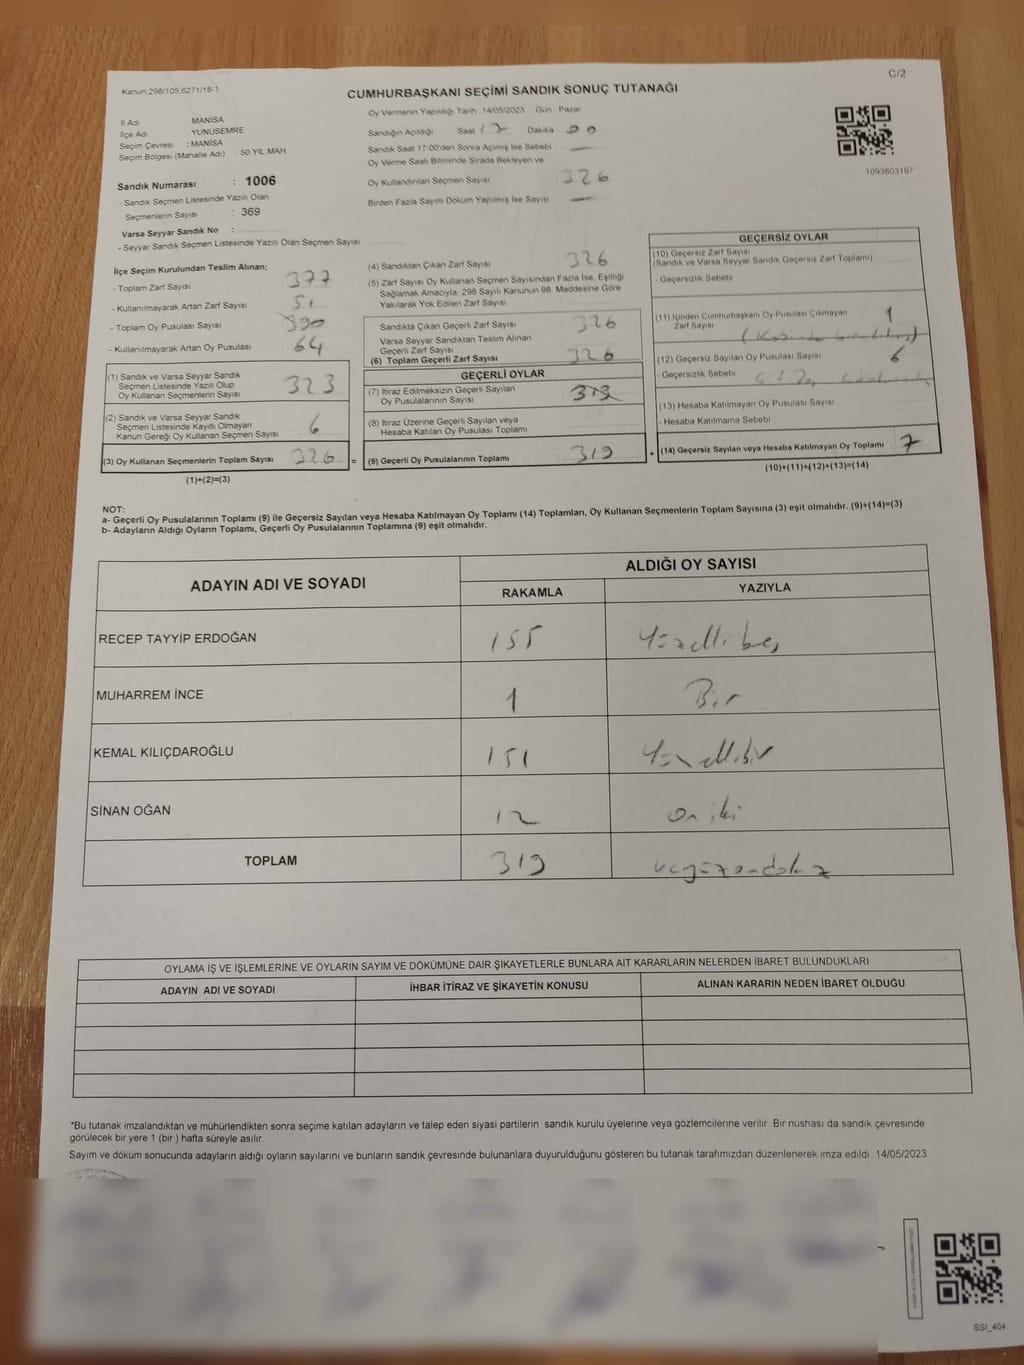 Kanun:298/105,6271/18-1
C/2
CUMHURBAŞKANI SEÇİMİ SANDIK SONUÇ TUTANAĞI
İl Adı : MANİSA
İlçe Adı : YUNUSEMRE
Seçim Çevresi : MANİSA
Seçim Bölgesi (Mahalle Adı) 50.YIL MAH.
Sandık Numarası : 1006
- Sandık Seçmen Listesinde Yazılı Olan
Seçmenlerin Sayısı : 369
Varsa Seyyar Sandık No :
- Seyyar Sandık Seçmen Listesinde Yazılı Olan Seçmen Sayısı:
Oy Vermenin Yapıldığı Tarih :14/05/2023 Gün : Pazar
Sandığın Açıldığı Saat 17 Dakika 00
Sandık Saat 17:00'den Sonra Açılmış İse Sebebi —
Oy Verme Saati Bitiminde Sırada Bekleyen ve
Oy Kullandırılan Seçmen Sayısı 326
Birden Fazla Sayım Döküm Yapılmış İse Sayısı —
1093803197
İlçe Seçim Kurulundan Teslim Alınan;
- Toplam Zarf Sayısı 377
- Kullanılmayarak Artan Zarf Sayısı 51
- Toplam Oy Pusulası Sayısı 390
- Kullanılmayarak Artan Oy Pusulası 64
(1) Sandık ve Varsa Seyyar Sandık
Seçmen Listesinde Yazılı Olup
Oy Kullanan Seçmenlerin Sayısı 323
(2) Sandık ve Varsa Seyyar Sandık
Seçmen Listesinde Kayıtlı Olmayan
Kanun Gereği Oy Kullanan Seçmen Sayısı 6
(3) Oy Kullanan Seçmenlerin Toplam Sayısı 326 =
(1)+(2)=(3)
(4) Sandıktan Çıkan Zarf Sayısı 326
(5) Zarf Sayısı Oy Kullanan Seçmen Sayısından Fazla İse, Eşitliği
Sağlamak Amacıyla; 298 Sayılı Kanunun 98. Maddesine Göre
Yakılarak Yok Edilen Zarf Sayısı
Sandıkta Çıkan Geçerli Zarf Sayısı 326
Varsa Seyyar Sandıktan Teslim Alınan
Geçerli Zarf Sayısı
(6) Toplam Geçerli Zarf Sayısı 326
GEÇERLİ OYLAR
(7) İtiraz Edilmeksizin Geçerli Sayılan
Oy Pusulalarının Sayısı 319
(8) İtiraz Üzerine Geçerli Sayılan veya
Hesaba Katılan Oy Pusulası Toplamı
(9) Geçerli Oy Pusulalarının Toplamı 319 +
GEÇERSİZ OYLAR
(10) Geçersiz Zarf Sayısı
(Sandık ve Varsa Seyyar Sandık Geçersiz Zarf Toplamı)
- Geçersizlik Sebebi
(11) İçinden Cumhurbaşkanı Oy Pusulası Çıkmayan
Zarf Sayısı 1
(12) Geçersiz Sayılan Oy Pusulası Sayısı 6
- Geçersizlik Sebebi
(13) Hesaba Katılmayan Oy Pusulası Sayısı
- Hesaba Katılmama Sebebi
(14) Geçersiz Sayılan veya Hesaba Katılmayan Oy Toplamı 7
(10)+(11)+(12)+(13)=(14)
NOT:
a- Geçerli Oy Pusulalarının Toplamı (9) ile Geçersiz Sayılan veya Hesaba Katılmayan Oy Toplamı (14) Toplamları, Oy Kullanan Seçmenlerin Toplam Sayısına (3) eşit olmalıdır. (9)+(14)=(3)
b- Adayların Aldığı Oyların Toplamı, Geçerli Oy Pusulalarının Toplamına (9) eşit olmalıdır.
ADAYIN ADI VE SOYADI
ALDIĞI OY SAYISI
RAKAMLA YAZIYLA
RECEP TAYYİP ERDOĞAN 155 Yüzellibeş
MUHARREM İNCE 1 Bir
KEMAL KILIÇDAROĞLU 151 Yüzellibir
SİNAN OĞAN 12 on iki
TOPLAM 319 üçyüzondokuz
OYLAMA İŞ VE İŞLEMLERİNE VE OYLARIN SAYIM VE DÖKÜMÜNE DAİR ŞİKAYETLERLE BUNLARA AİT KARARLARIN NELERDEN İBARET BULUNDUKLARI
ADAYIN ADI VE SOYADI İHBAR İTİRAZ VE ŞİKAYETİN KONUSU ALINAN KARARIN NEDEN İBARET OLDUĞU
*Bu tutanak imzalandıktan ve mühürlendikten sonra seçime katılan adayların ve talep eden siyasi partilerin sandık kurulu üyelerine veya gözlemcilerine verilir. Bir nüshası da sandık çevresinde
görülecek bir yere 1 (bir) hafta süreyle asılır.
Sayım ve döküm sonucunda adayların aldığı oyların sayılarını ve bunların sandık çevresinde bulunanlara duyurulduğunu gösteren bu tutanak tarafımızdan düzenlenerek imza edildi. 14/05/2023
SSI_404